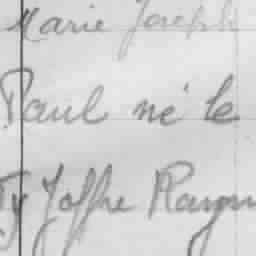 Marie Joseph
Paul né le
Joffre